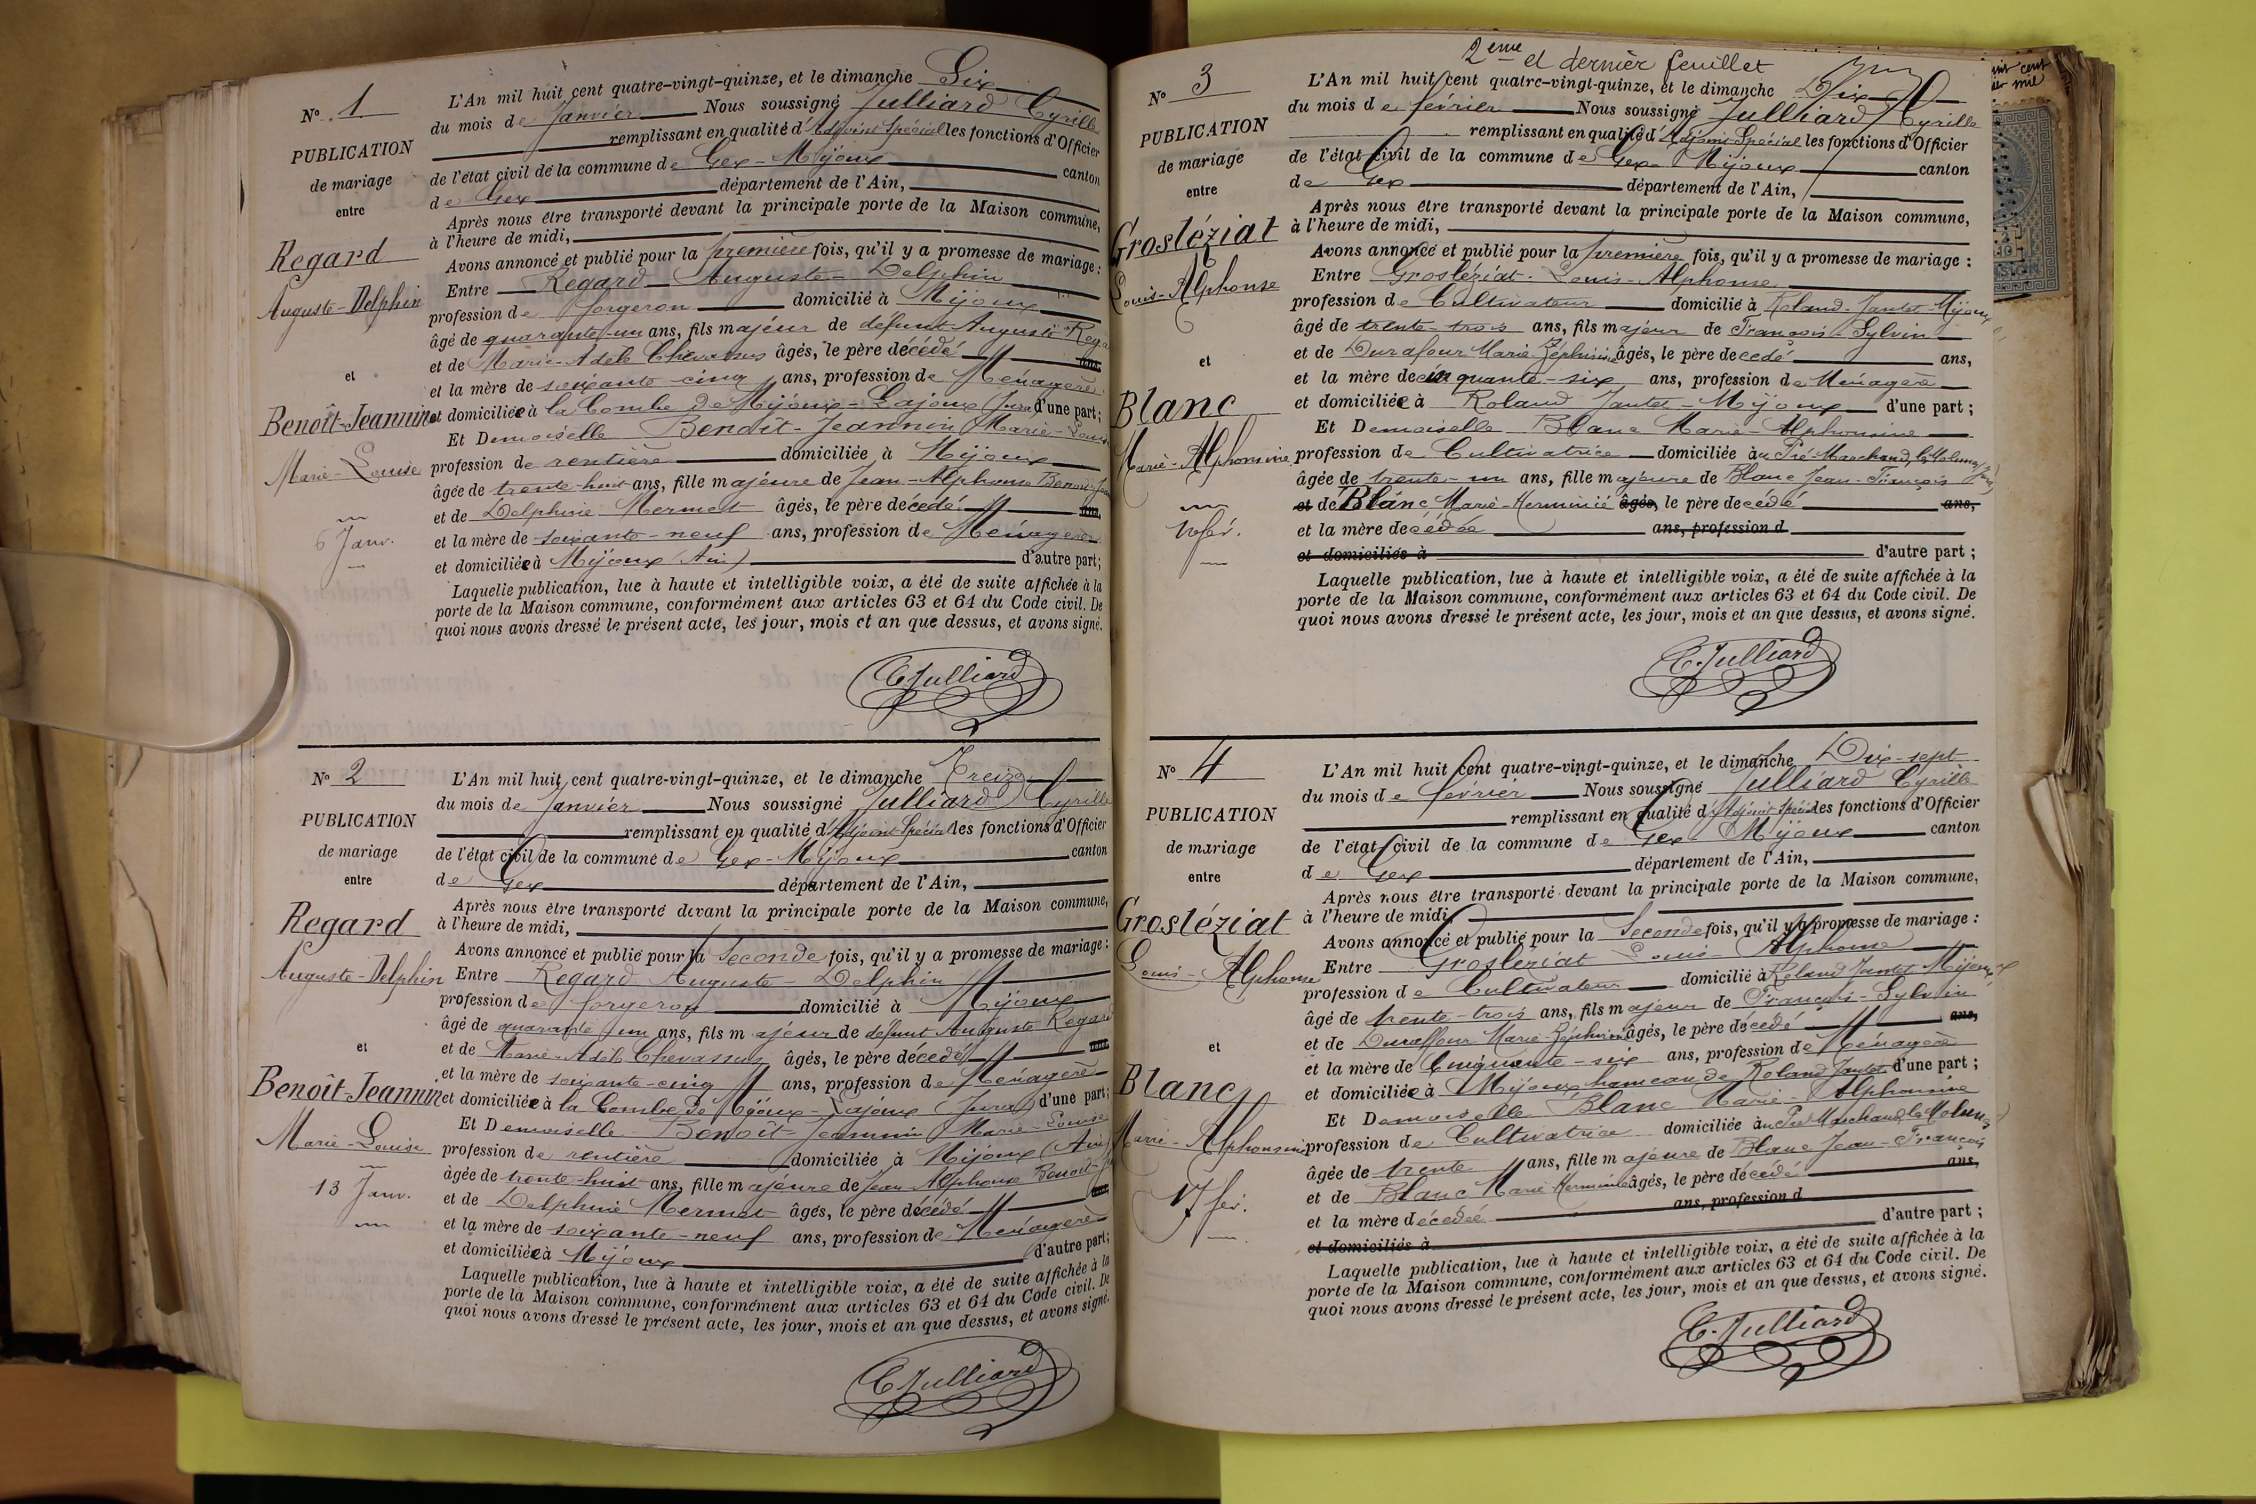 N° 1
PUBLICATION
de mariage
entre
Regard
Auguste-Delphin
et
Benoît-Jeannin
Marie-Louise
6 Janv.
L'An mil huit cent quatre-vingt-quinze, et le dimanche Six
du mois de Janvier Nous soussigné Julliard Cyrille
remplissant en qualité d'Adjoint Spécial les fonctions d'Officier
de l'état civil de la commune de Gex-Mijoux canton
de Gex département de l'Ain,
Après nous être transporté devant la principale porte de la Maison commune,
à l'heure de midi,
Avons annoncé et publié pour la première fois, qu'il y a promesse de mariage :
Entre Regard Auguste-Delphin
profession de forgeron domicilié à Mijoux
âgé de quarante-un ans, fils majeur de défunt Auguste Rega
et de Marie-Adèle Chevassus âgés, le père décédé ans,
et la mère de soixante-cinq ans, profession de Ménagère
et domiciliée à la Combe de Mijoux-Lajoux (Jura) d'une part ;
Et Demoiselle Benoît-Jeannin Marie-Louise
profession de rentière domiciliée à Mijoux
âgée de trente-huit ans, fille majeure de Jean-Alphonse Benoît-Jean
et de Delphine Mermet âgés, le père décédé ans,
et la mère de soixante-neuf ans, profession de Ménagère
et domiciliée à Mijoux (Ain) d'autre part ;
Laquelle publication, lue à haute et intelligible voix, a été de suite affichée à la
porte de la Maison commune, conformément aux articles 63 et 64 du Code civil. De
quoi nous avons dressé le présent acte, les jour, mois et an que dessus, et avons signé.
C. Julliard
N° 2
PUBLICATION
de mariage
entre
Regard
Auguste-Delphin
et
Benoît-Jeannin
Marie-Louise
13 Janv.
L'An mil huit cent quatre-vingt-quinze, et le dimanche Treize
du mois de Janvier Nous soussigné Julliard Cyrille
remplissant en qualité d'Adjoint Spécial les fonctions d'Officier
de l'état civil de la commune de Gex-Mijoux canton
de Gex département de l'Ain,
Après nous être transporté devant la principale porte de la Maison commune,
à l'heure de midi,
Avons annoncé et publié pour la Seconde fois, qu'il y a promesse de mariage :
Entre Regard Auguste-Delphin
profession de forgeron domicilié à Mijoux
âgé de quarante-un ans, fils majeur de défunt Auguste Regard
et de Marie-Adèle Chevassus âgés, le père décédé ans,
et la mère de soixante-cinq ans, profession de Ménagère
et domiciliée à la Combe de Mijoux-Lajoux (Jura) d'une part ;
Et Demoiselle Benoît-Jeannin Marie-Louise
profession de rentière domiciliée à Mijoux (Ain)
âgée de trente-huit ans, fille majeure de Jean Alphonse Benoît-Je
et de Delphine Mermet âgés, le père décédé ans,
et la mère de soixante-neuf ans, profession de Ménagère
et domiciliée à Mijoux d'autre part ;
Laquelle publication, lue à haute et intelligible voix, a été de suite affichée à la
porte de la Maison commune, conformément aux articles 63 et 64 du Code civil. De
quoi nous avons dressé le présent acte, les jour, mois et an que dessus, et avons signé.
C. Julliard
2ème et dernier feuillet
N° 3
PUBLICATION
de mariage
entre
Grosléziat
Louis-Alphonse
et
Blanc
Marie-Alphonsine
10 fév.
L'An mil huit cent quatre-vingt-quinze, et le dimanche Dix
du mois de février Nous soussigné Julliard Cyrille
remplissant en qualité d'Adjoint Spécial les fonctions d'Officier
de l'état civil de la commune de Gex-Mijoux canton
de Gex département de l'Ain,
Après nous être transporté devant la principale porte de la Maison commune,
à l'heure de midi,
Avons annoncé et publié pour la première fois, qu'il y a promesse de mariage :
Entre Grosléziat-Louis-Alphonse
profession de Cultivateur domicilié à Roland-Jantet-Mijoux
âgé de trente-trois ans, fils majeur de François-Sylvin
et de Durafour Marie-Zéphirine âgés, le père decédé ans,
et la mère de cinquante-six ans, profession de Ménagère
et domiciliée à Roland Jantet-Mijoux d'une part ;
Et Demoiselle Blanc Marie-Alphonsine
profession de Cultivatrice domiciliée au Pré Marchand, les Molunes (Jura)
âgée de trente-un ans, fille majeure de Blanc Jean-François
et de Blanc Marie-Herminie âgés, le père decédé ans,
et la mère decédée ans, profession d
et domiciliés à d'autre part ;
Laquelle publication, lue à haute et intelligible voix, a été de suite affichée à la
porte de la Maison commune, conformément aux articles 63 et 64 du Code civil. De
quoi nous avons dressé le présent acte, les jour, mois et an que dessus, et avons signé.
C. Julliard
N° 4
PUBLICATION
de mariage
entre
Grosléziat
Louis-Alphonse
et
Blanc
Marie-Alphonsine
17 fév.
L'An mil huit cent quatre-vingt-quinze, et le dimanche Dix-sept
du mois de février Nous soussigné Julliard Cyrille
remplissant en qualité d'Adjoint Spécial les fonctions d'Officier
de l'état civil de la commune de Gex-Mijoux canton
de Gex département de l'Ain,
Après nous être transporté devant la principale porte de la Maison commune,
à l'heure de midi,
Avons annoncé et publié pour la Seconde fois, qu'il y a promesse de mariage :
Entre Grosleziat Louis-Alphonse
profession de Cultivateur domicilié à Roland Jantet Mijoux
âgé de trente-trois ans, fils majeur de François-Sylvin
et de Duraffour Marie-Zéphirine âgés, le père décédé ans,
et la mère de Cinquante-six ans, profession de Ménagère
et domiciliée à Mijoux hameau de Roland Jantet d'une part ;
Et Demoiselle Blanc Marie-Alphonsine
profession de Cultivatrice domiciliée au Pré Marchand, les Molunes
âgée de trente ans, fille majeure de Blanc Jean-François
et de Blanc Marie Herminie âgés, le père décédé ans,
et la mère décédée ans, profession d
et domiciliés à d'autre part ;
Laquelle publication, lue à haute et intelligible voix, a été de suite affichée à la
porte de la Maison commune, conformément aux articles 63 et 64 du Code civil. De
quoi nous avons dressé le présent acte, les jour, mois et an que dessus, et avons signé.
C. Julliard